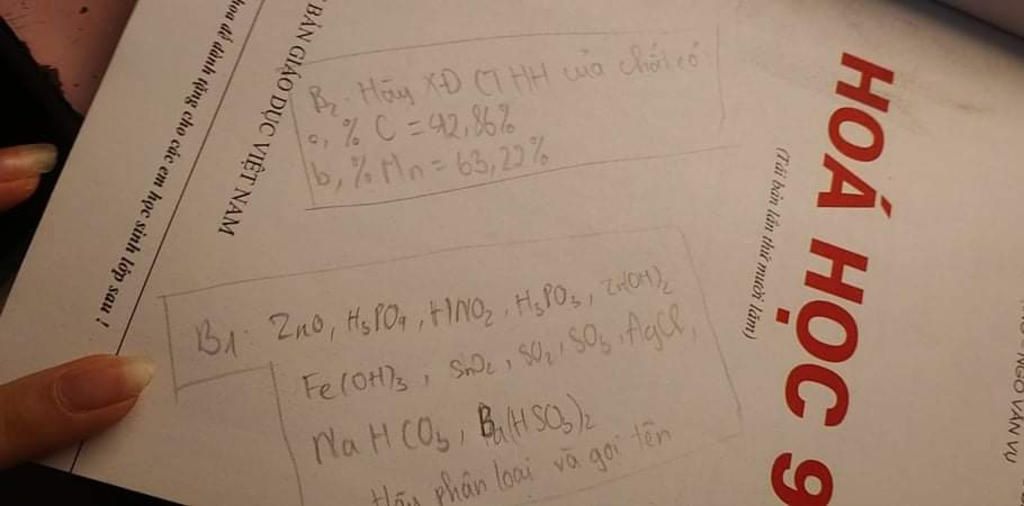 B2. Hãy XĐ CTHH của chất có:
a, % C = 42,86%
b, % Mn = 63,22%
B1. ZnO, H3PO4, HNO2, H3PO3, Zn(OH)2
Fe(OH)3, SnO2, SO2, SO3, AgCl,
NaHCO3, Ba(HSO3)2
Hãy phân loại và gọi tên
BẢN GIÁO DỤC VIỆT NAM
hoa để dành tặng cho các em học sinh lớp sau !
HOÁ HỌC 9
(Tái bản lần thứ mười lăm)
NGÔ VĂN VỤ